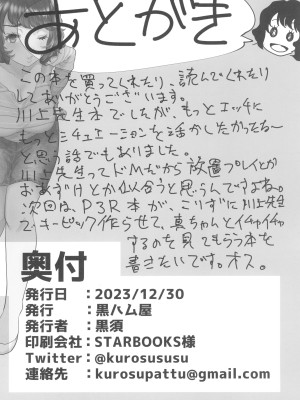 あとがき
この本を買ってくれたり、読んでくれたり
してありがとうございます。
川上先生本でしたが、もっとエッチに
もっとシチュエーションを活かしたかったな〜
と思う話でもありました。
川上先生ってドMだから放置プレイとか
おあずけとか似合うと思うんですよね。
次回は、P3R本か、こりずに川上先生
で作らせて、真ちゃんとイチャイチャ
するのを見てもらう本を
書きたいです。オス。
奥付
発行日 :2023/12/30
発行 :黒ハム屋
発行者 :黒須
印刷会社:STARBOOKS様
Twitter :@kurosususu
連絡先 :kurosupattu@gmail.com